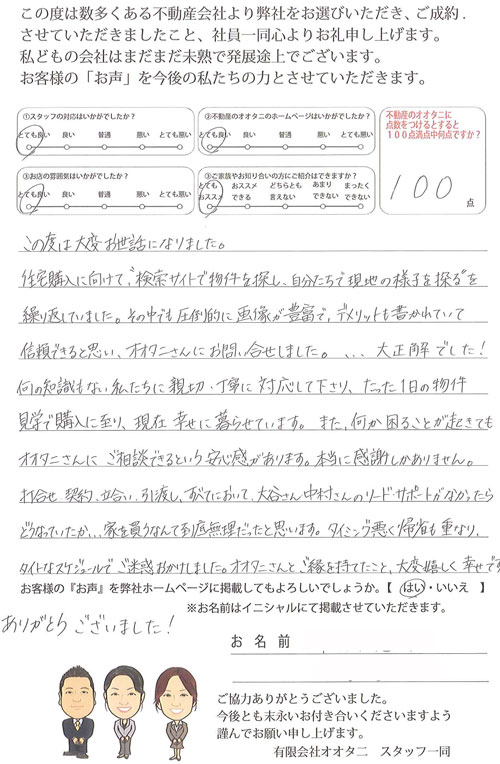 この度は数多くある不動産会社より弊社をお選びいただき、ご成約.
させていただきましたこと、社員一同心よりお礼申し上げます。
私どもの会社はまだまだ未熟で発展途上でございます。
お客様の「お声」を今後の私たちの力とさせていただきます。
①スタッフの対応はいかがでしたか？
とても良い 良い 普通 悪い とても悪い
②不動産のオオタニのホームページはいかがでしたか？
とても良い 良い 普通 悪い とても悪い
③お店の雰囲気はいかがでしたか？
とても良い 良い 普通 悪い とても悪い
③ご家族やお知り合いの方にご紹介はできますか？
とても おススメ どちらとも あまり まったく
おススメ できる 言えない できない できない
不動産のオオタニに
点数をつけるとすると
１００点満点中何点ですか？
100
点
この度は大変お世話になりました。
住宅購入に向けて、"検索サイトで物件を探し、自分たちで現地の様子を探る"を
繰り返していました。その中でも圧倒的に画像が豊富で、デメリットも書かれていて
信頼できると思い、オオタニさんにお問い合せしました。 、、、 大正解でした!
何の知識もない私たちに親切・丁寧に対応して下さり、たった1日の物件
見学で購入に至り、現在幸せに暮らせています。また、何か困ることが起きても
オオタニさんにご相談できるという安心感があります。本当に感謝しかありません。
打合せ、契約、立合い、引渡し、すべてにおいて、大谷さん中村さんのリード・サポートがなかったら
どうなっていたか…家を買うなんて到底無理だったと思います。タイミング悪く帰省も重なり、
タイトなスケジュールでご迷惑おかけしました。オオタニさんとご縁を持てたこと、大変嬉しく幸せです
お客様の『お声』を弊社ホームページに掲載してもよろしいでしょうか。【 はい・いいえ 】
※お名前はイニシャルにて掲載させていただきます。
ありがとうございました!
お 名 前
ご協力ありがとうございました。
今後とも末永いお付き合いくださいますよう
謹んでお願い申し上げます。
有限会社オオタニ スタッフ一同